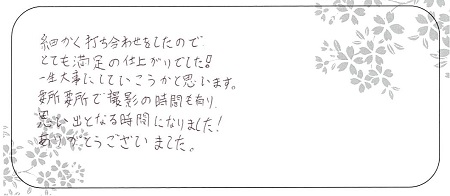 細かく打ち合わせをしたので
とても満足の仕上がりでした!
一生大事にしていこうかと思います。
要所要所で撮影の時間も有り、
思い出となる時間になりました!
ありがとうございました。